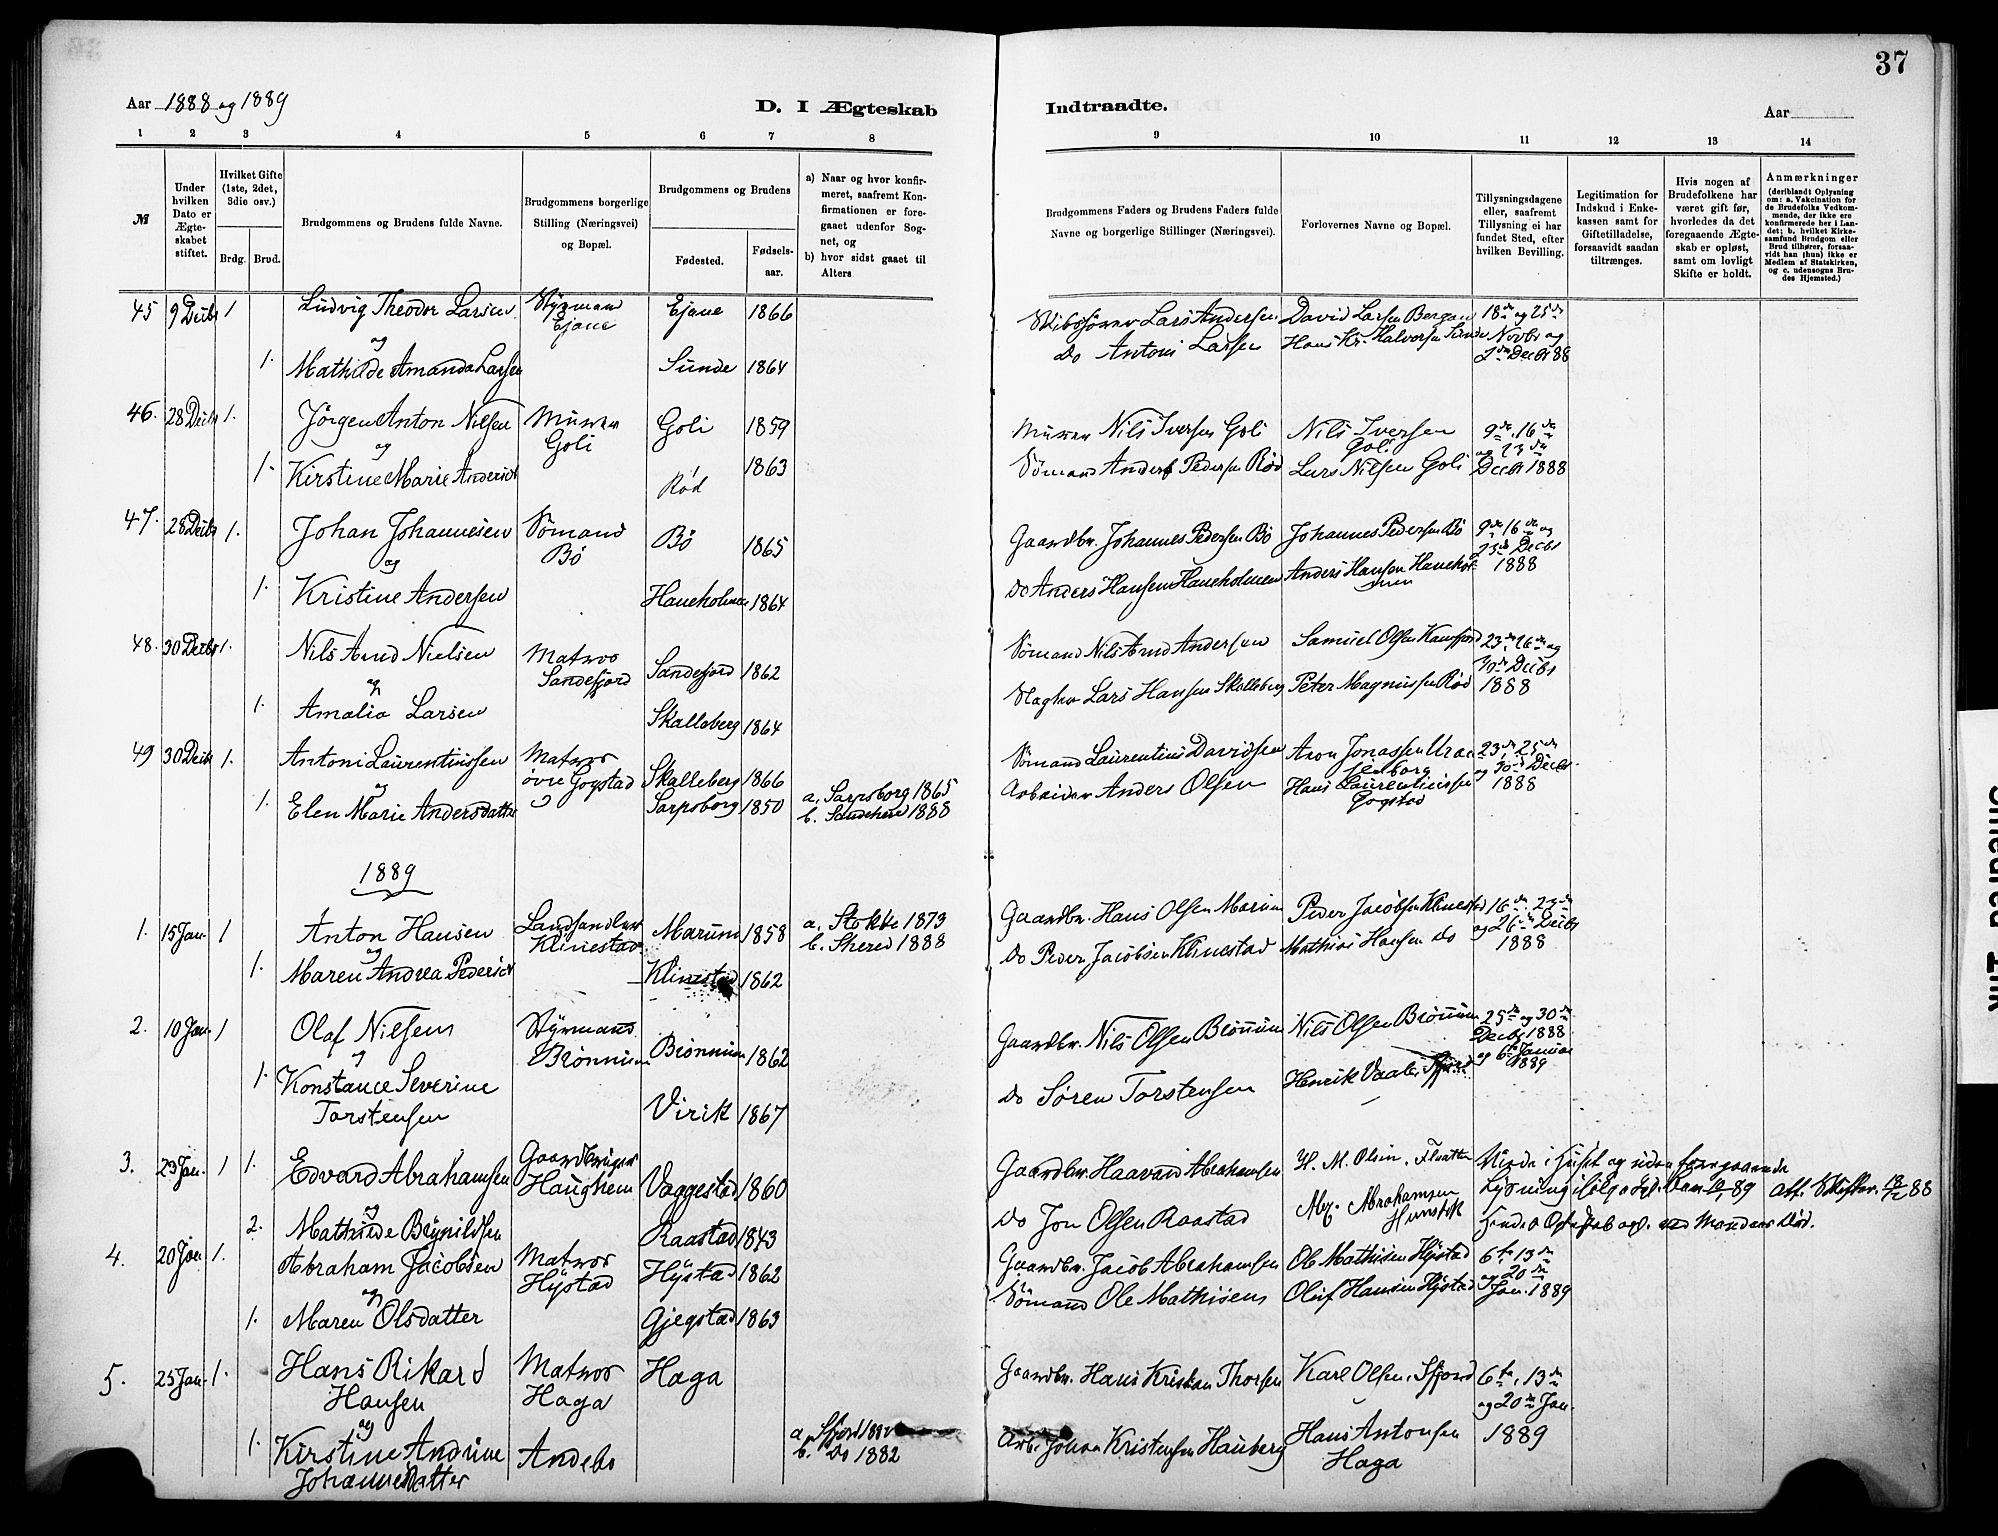 37
Aar 1888 og 1889
D. I Ægteskab
Indtraadte.
Aar
1 2 3 4 5 6 7 8 9 10 11 12 13 14
№
Under hvilken Dato er Ægteskabet stiftet.
Hvilket Gifte (1ste, 2det, 3die osv.)
Brdg. Brud.
Brudgommens og Brudens fulde Navne.
Brudgommens borgerlige Stilling (Næringsvei) og Bopæl.
Brudgommens og Brudens
Fødested. Fødselsaar.
a) Naar og hvor konfirmeret, saafremt Konfirmationen er foregaaet udenfor Sognet, og
b) hvor sidst gaaet til Alters
Brudgommens Faders og Brudens Faders fulde Navne og borgerlige Stillinger (Næringsvei).
Forlovernes Navne og Bopæl.
Tillysningsdagene eller, saafremt Tillysning ei har fundet Sted, efter hvilken Bevilling.
Legitimation for Indskud i Enkekassen samt for Giftetilladelse, forsaavidt saadan tiltrænges.
Hvis nogen af Brudefolkene har været gift før, hvorledes da det foregaaende Ægteskab er opløst, samt om lovligt Skifte er holdt.
Anmærkninger (deriblandt Oplysning om: a. Vakcination for de Brudefolks Vedkommende, der ikke ere konfirmerede her i Landet; b. hvilket Kirkesamfund Brudgom eller Brud tilhører, forsaavidt han (hun) ikke er Medlem af Statskirken, og c. udensogns Brudes Hjemsted.)
45 9 Decbr 1 Ludvig Theodor Larsen Styrmand Ejane Ejane 1866 Lars Andersen David Larsen Bergan 18de og 25de
og
1. Mathilde Amanda Larsen Sunde 1864 Do Antoni Larsen Hans Kr. Halvorsen Sunde Novbr og 2den Decbr 88
46. 28 Decbr 1. Jörgen Anton Nilsen Murer Goli Goli 1859 Murer Nils Iversen Goli Nils Iversen Goli 9de, 16de
og
1. Kirstine Marie Andersdt Rød 1863 Sømand Anders Pedersen Rød Lars Nilsen Goli og 23de Decbr 1888
47. 28 Decbr 1. Johan Johannesen Sømand Bö Bö 1865 Gaardbr. Johannes Pedersen Bö Johannes Pedersen Bö 9de, 16de og
og
1. Kristine Andersen Haneholmen 1864 Do Anders Hansen Haneholmen Anders Hansen Haneholmen 23de Decbr 1888
48. 30 Decbr 1. Nils Arnd Nielsen Matros Sandefjord Sandefjord 1862 Sømand Nils Arnd Andersen Samuel Olsen 23de, 26de og
og
1. Amalia Larsen Skalleberg 1864 Lars Hansen Skalleberg Peter Magnussen Rød 30de Decbr 1888
49 30 Decbr 1. Antoni Laurentiussen Matros övre Gogstad Skalleberg 1866 Sømand Laurentius Davidsen Aron Jonassen 23de, 25de
og
1. Elen Marie Andersdatter Sarpsborg 1850 a. Sarpsborg 1865 b. Sandeherd 1888 Arbeider Anders Olsen Hans Laurentiussen Gogstad og 30de Decbr 1888
1889
1. 15 Jan. 1 Anton Hansen Landhandler Klinestad Marum 1858 a. Stokke 1873 b. 1888 Gaardbr. Hans Olsen Marum Peder Jacobsen Klinestad 16de, 23de
og
1. Maren Andrea Pedersdt Klinestad 1862 Do Peder Jacobsen Klinestad Mathias Hansen Do og 26de Decbr 1888
2. 10 Jan. 1 Olaf Nilsen Styrmand Brönnum Brönnum 1862 Gaardbr. Nils Olsen Brönnum Nils Olsen Brönnum 25de og 30de Decbr 1888
og
1. Konstance Severine Torstensen Virik 1867 Do Sören Torstensen Henrik og 6te Januar 1889
3. 23 Jan. 1 1. Edvard Abrahamsen Gaardbruger Haughem Vaggestad 1860 Gaardbr. Haavard Abrahamsen Viede i Huset og uden foregaaende
og
2. Mathilde Brynildsen Raastad 1843 Do Jon Olsen Raastad Alex. Abrahamsen Hunstok Lysning 89 Att. 88
4. 20 Jan 1. Abraham Jacobsen Matros Hystad Hystad 1862 Gaardbr. Jacob Abrahamsen Ole Mathisen Hystad 6te, 13de
og
1. Maren Olsdatter Gjegstad 1863 Sømand Ole Mathisen Oluf Hansen Hystad og 20de Jan. 1889
5. 25 Jan 1. Hans Rikard Hansen Matros Haga Haga Gaardbr. Hans Kristian Thorsen Karl Olsen, Sfjord 6te, 13de
og
1. Kirstine Andrine Johannesdatter Andebo a. Sfjord b. Do 1882 Arb. Johan Kristensen Hauberg Hans Antonsen Haga og 20de Jan. 1889